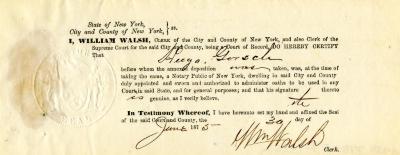 State of New York,
City and County of New York, } ss.
I, WILLIAM WALSH, CLERK of the City and County of New York, and also Clerk of the
Supreme Court for the said City and County, being a Court of Record, DO HEREBY CERTIFY
That Hugo Gorsch
before whom the annexed deposition was taken, was, at the time of
taking the same, a Notary Public of New York, dwelling in said City and County
duly appointed and sworn and authorized to administer oaths to be used in any
Court in said State, and for general purposes; and that his signature thereto
is genuine, as I verily believe.
In Testimony Whereof, I have hereunto set my hand and affixed the Seal
of the said Court and County, the 30 day of
June 1875
Wm Walsh
Clerk.